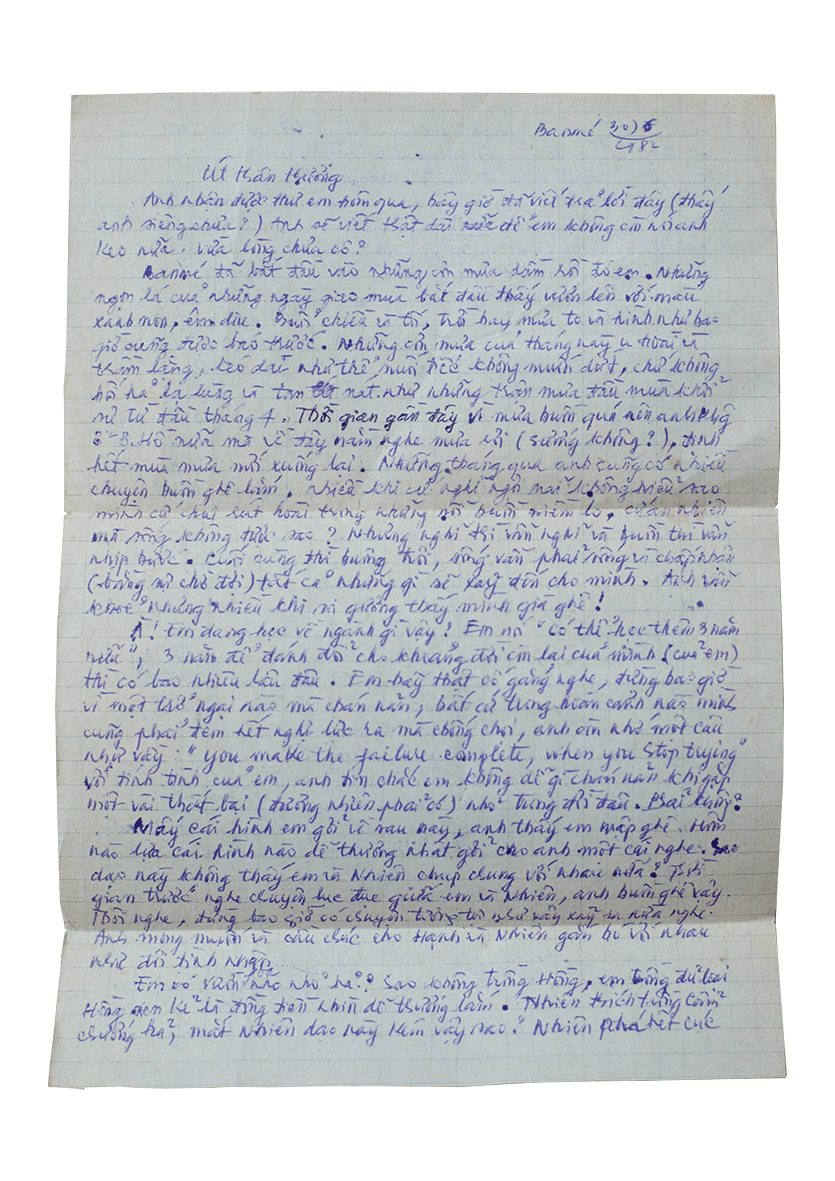 Banmé 30/6
1982
Út thân thương
Anh nhận được thư em hôm qua, bây giờ đã viết trả lời đây (thấy
anh siêng chưa?) Anh sẽ viết thật dài nữa để em không còn nói anh
keo nữa. vừa lòng chưa cô?
Banmé đã bắt đầu vào những cơn mưa dầm rồi đó em. Những
ngọn lá của những ngày giao mùa bắt đầu thấy vươn lên với màu
xanh non, êm dịu. Buổi chiều và tối, trời hay mưa to và hình như bao
giờ cũng được báo trước. Những cơn mưa của tháng này u hoài và
trầm lặng, kéo dài như thể nuối tiếc không muốn dứt, chứ không
hối hả lạ lùng và tan nát như những trận mưa đầu mùa khởi
sự từ đầu tháng 4. Thời gian gần đây vì mưa buồn quá nên anh
B.Hồ nữa mà về đây nằm nghe mưa rơi (sướng không?), định
hết mùa mưa mới xuống lại. Những tháng qua anh cũng có nhiều
chuyện buồn ghê lắm. nhiều khi cứ nghĩ ngợi mãi không hiểu sao
mình cứ chui rút hoài trong những nỗi buồn niềm lo,
mà sống không được sao? Nhưng nghĩ thì vẫn nghĩ và buồn thì vẫn
nhịp bước. Cuối cùng thì buông trôi, sống vẫn phải sống và chấp nhận
(bằng sự chờ đợi) tất cả những gì sẽ xảy đến cho mình. Anh vẫn
khoẻ nhưng nhiều khi soi gương thấy mình già ghê!
À! Em đang học về ngành gì vậy? Em nói "có thể học thêm 3 năm
nữa", 3 năm để đánh đổi cho khoảng đời còn lại của mình (của em)
thì có bao nhiêu lâu đâu. Em hãy thật cố gắng nghe, đừng bao giờ
vì một trở ngại nào mà chán nản, bất cứ trong hoàn cảnh nào mình
cũng phải đem hết nghị lực ra mà chống chọi, anh còn nhớ một câu
như vầy: "you make the failure complete, when you stop trying"
với tính tình của em, anh tin chắc em không dễ gì chán nản khi gặp
một vài thất bại (đương nhiên phải có) nhỏ trong đời đâu. Phải không?
Mấy cái hình em gởi về sau này, anh thấy em mập ghê. Hôm
nào lựa cái hình nào dễ thương nhất gởi cho anh một cái nghe. Sao
dạo này không thấy em và Nhiên chụp chung với nhau nữa? Thời
gian trước nghe chuyện lục đục giữa em và Nhiên, anh buồn ghê vậy.
Thôi nghe, đừng bao giờ có chuyện tương tự như vậy xảy ra nữa nghe.
Anh mong muốn và cầu chúc cho Hạnh và Nhiên gắn bó với nhau
như đôi tình nhân.
Em có vườn nho nhỏ hả? Sao không trồng Hồng, em trồng đủ loại
Hồng xen kẽ là đứng trên nhìn dễ thương lắm. Nhiên thích trồng cẩm
chướng hả, mắt Nhiên dạo này kém vậy sao? Nhiên phá hết cúc